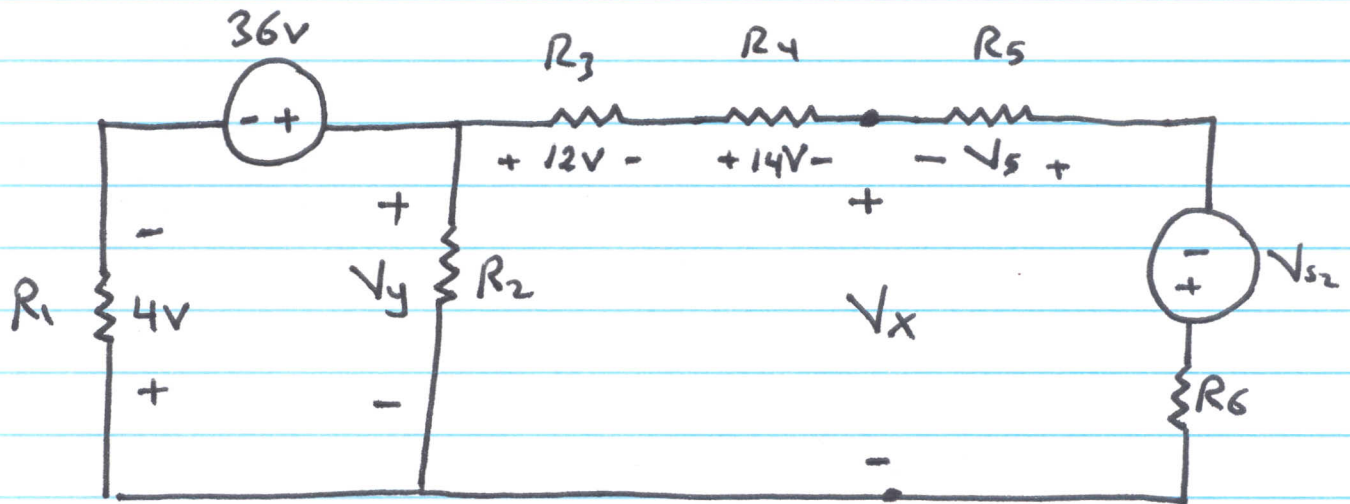 36v
R3 R4 R5
- +
+ 12V - + 14V - - V5 +
+ +
-
R1 4V Vy R2 Vx - + Vs2
+ - R6
-